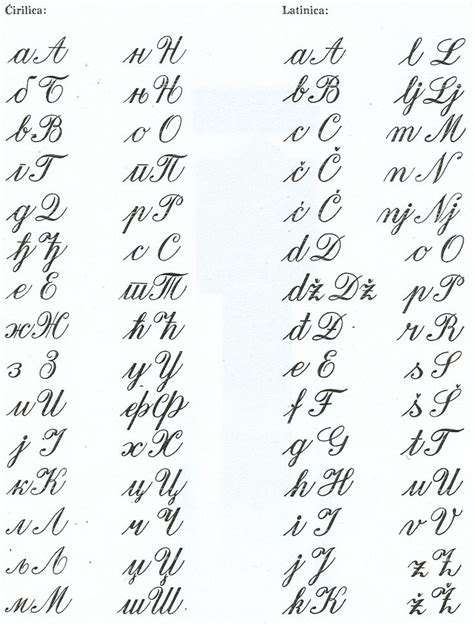 Ćirilica: Latinica:
а А н Н a A l L
б Б њ Њ b B lj Lj
в В о О c C m M
г Г п П č Č n N
д Д р Р ć Ć nj Nj
ђ Ђ с С d D o O
е Е т Т dž Dž p P
ж Ж ћ Ћ đ Đ r R
з З у У e E s S
и И ф Ф f F š Š
ј Ј х Х g G t T
к К ц Ц h H u U
л Л ч Ч i I v V
љ Љ џ Џ j J z Z
м М ш Ш k K ž Ž